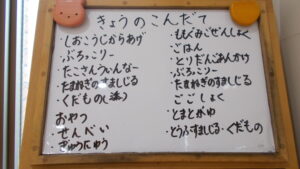 きょうのこんだて
・しおこうじからあげ
・ぶろっこりー
・たこさんういんなー
・たまねぎのすましじる
・くだもの
おやつ
・せんべい
ぎゅうにゅう
・ももぐみごぜんしょく
・ごはん
・とりだんごあんかけ
・ぶろっこりー
・たまねぎのすましじる
・ごごしょく
・とまとがゆ
・とうふすましじる・くだもの